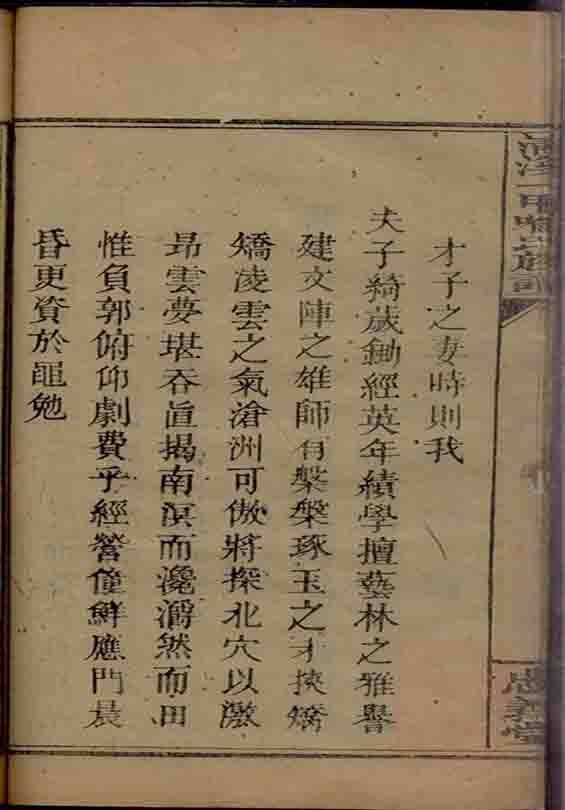 才子之妻時則我
夫子綺歲鋤經英年績學擅藝林之雅譽
建文陣之雄師有槃槃琢玉之才挾矯
矯凌雲之氣滄洲可傲將探北穴以激
昻雲夢堪吞直揭南溟而瀺灂然而田
惟負郭俯仰劇費乎經營僮鮮應門晨
昏更資於黽勉
忠義堂